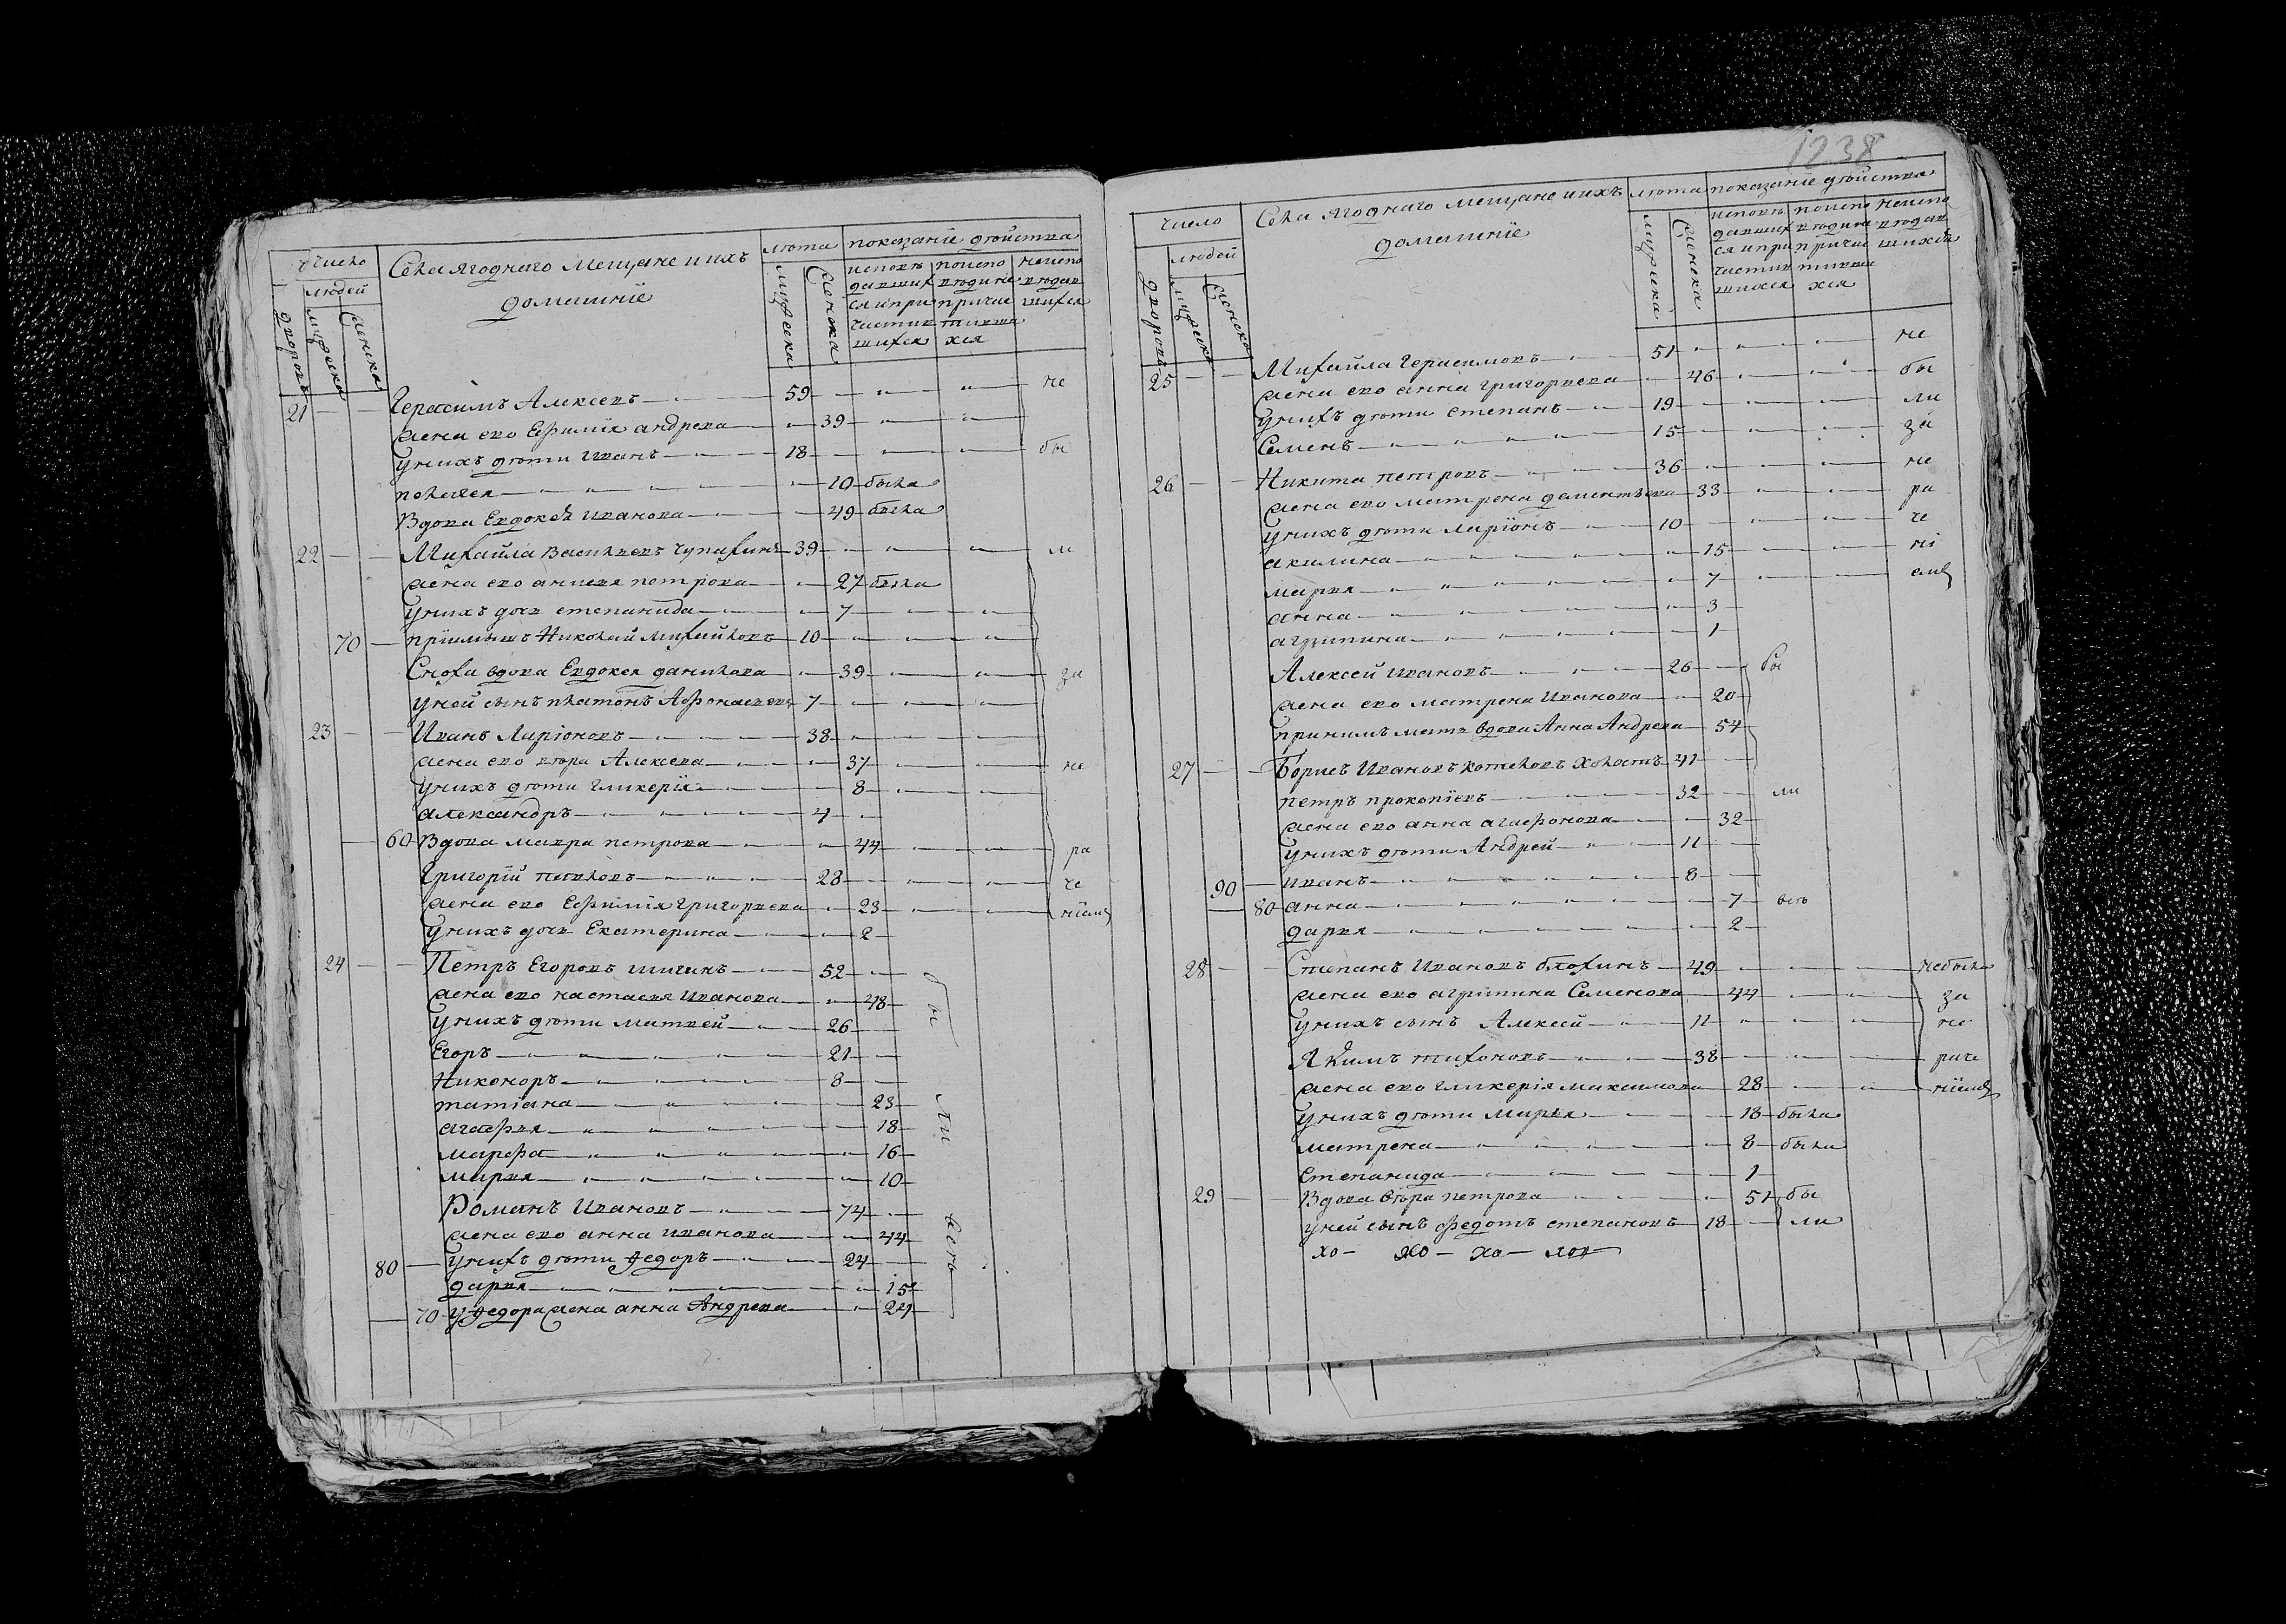 1238
Число
людей
дворовъ
мужеска
женска
Села Ягоднаго Мещане и ихъ
домашніе
лѣта
мужеска
женска
показаніе дѣйства
исповѣ
давших
ся и при
частив
шихся
по испо
вѣдине
причас
тивши
хся
не испо
вѣдав
шихся
21 Герасимъ Алексевъ 59 не
жена ево Ефимія андрева 39
у нихъ дѣти Иванъ 18 бы
пелагея 10 была
Вдова Евдокея Иванова 49 была
22 Михайла Васильевъ Чурахинъ 39 ли
жена ево анисья петрова 27 была
у нихъ дочь степанида 7
70 пріимышъ Николай Михайловъ 10
Сноха вдова Евдокея данилова 39 за
у ней сынъ платонъ Афонасьевъ 7
23 Иванъ Ларіоновъ 38
жена ево вѣра Алексева 37 не
у нихъ дѣти Гликерія 8
александръ 4
60 Вдова мавра петрова 44 ра
Григорій павловъ 28 че
жена ево Ефимія Григорьева 23 ніемъ
у нихъ дочь Екатерина 2
24 Петръ Егоровъ шигинъ 52 бы
жена ево настасья Иванова 48
у нихъ дѣти матвей 26
Егоръ 21
Никоноръ 8
татіана 23 ли
агафья 18
марфа 16
марья 10
Романъ Ивановъ 74
жена ево анна иванова 44 всѣ
80 у нихъ дѣти Федоръ 24
дарья 15
70 у Федора жена анна Андрева 24
Число
людей
дворовъ
мужеска
женска
Села Ягоднаго мещане и ихъ
домашніе
лѣта
мужеска
женска
показаніе дѣйства
исповѣ
давших
ся и при
частив
шихся
по испо
вѣдина
причас
тивши
хся
не испо
вѣдав
шихся
25 Михайла Герасимовъ 51 не
жена ево анна григорьева 46 бы
у нихъ дѣти степанъ 19 ли
Семенъ 15 за
26 Никита петровъ 36 не
жена ево матрена дементьева 33 ра
у нихъ дѣти ларіонъ 10 че
акилина 15 ні
марья 7 емъ
анна 3
агрипина 1
Алексей ивановъ 26 бы
жена ево матрена Иванова 20
при нимъ мать вдова Анна Андрева 54
27 Борисъ Ивановъ котеловъ холостъ 41
петръ прокопіевъ 32 ли
жена ево анна агафонова 32
у нихъ дѣти Андрей 11
90 иванъ 8
80 анна 7 всѣ
дарья 2
28 Степанъ Ивановъ блохинъ 49 небыли
жена ево агрипина Семенова 44 за
у нихъ сынъ Алексей 11 не
Якимъ тихоновъ 38 раче
жена ево гликерія максимова 28 ніемъ
у нихъ дѣти Марья 18 была
матрена 8 была
степанида 1
29 Вдова вѣра петрова 51 бы
у ней сынъ федотъ степановъ 18 ли